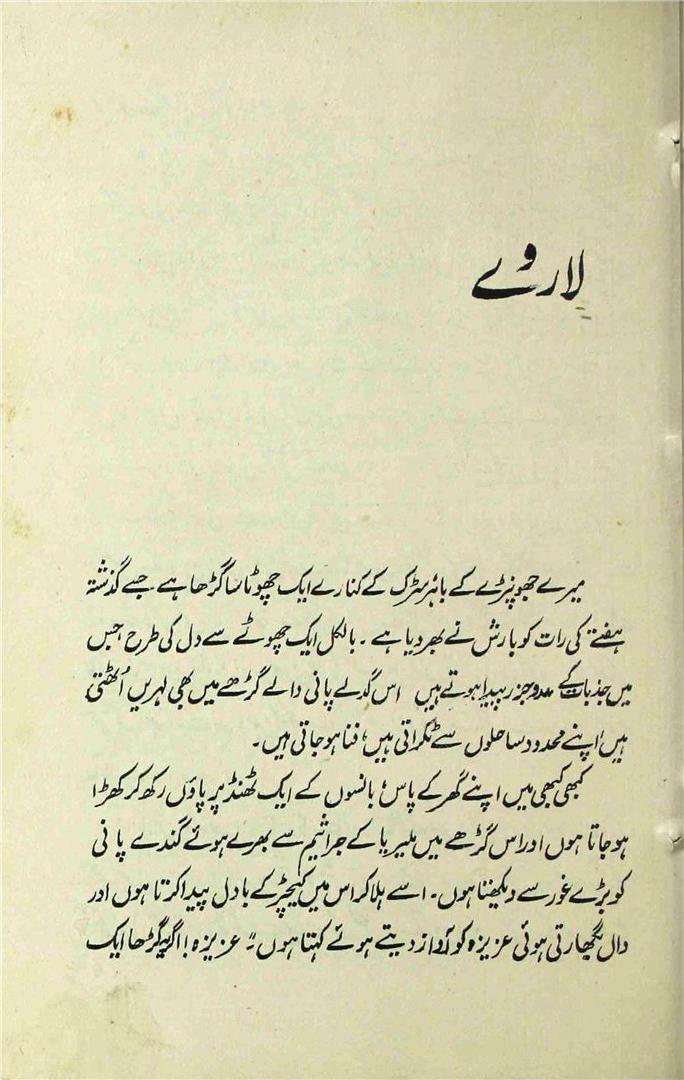 لاروے
میرے جھونپڑے کے باہر سڑک کے کنارے ایک چھوٹا سا گڑھا ہے جسے گذشتہ
ہفتے کی رات کو بارش نے بھر دیا ہے ۔ بالکل ایک چھوٹے سے دل کی طرح جس
میں جذبات کے مدوجزر پیدا ہوتے ہیں اس گدلے پانی والے گڑھے میں بھی لہریں اُٹھتی
ہیں، اپنے محدود ساحلوں سے ٹکراتی ہیں، فنا ہو جاتی ہیں۔
کبھی کبھی میں اپنے گھر کے پاس، بانسوں کے ایک ٹھنڈ پر پاؤں رکھ کر کھڑا
ہو جاتا ہوں اور اس گڑھے میں ملیریا کے جراثیم سے بھرے ہوئے گندے پانی
کو بڑے غور سے دیکھتا ہوں۔ اسے ہلا کر اس میں کیچڑ کے بادل پیدا کرتا ہوں اور
دال بگھارتی ہوئی عزیزہ کو آواز دیتے ہوئے کہتا ہوں۔" عزیزہ ! اگر یہ گڑھا ایک